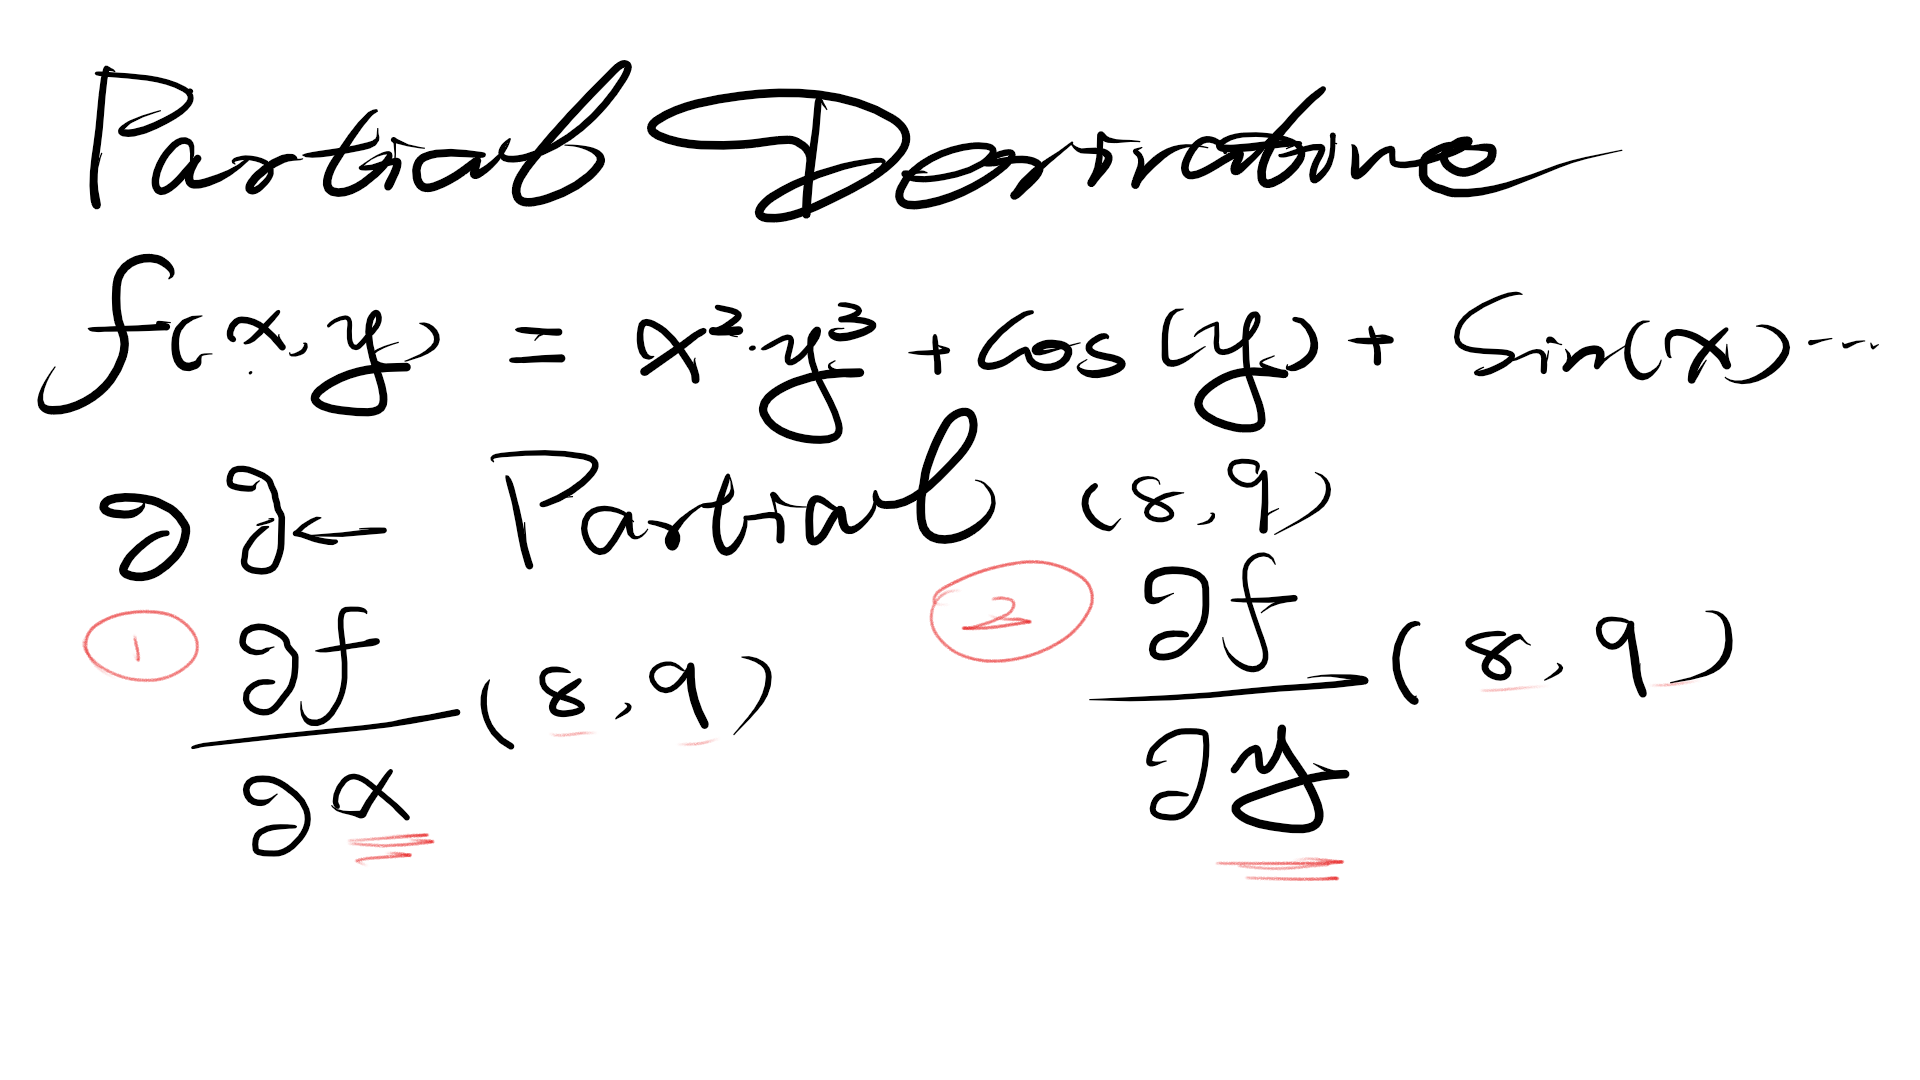 Partial Derivative
f(x, y) = x²·y³ + cos(y) + sin(x) ...
∂ ∂ ← Partial (8, 9)
① ∂f/∂x (8, 9)
② ∂f/∂y (8, 9)